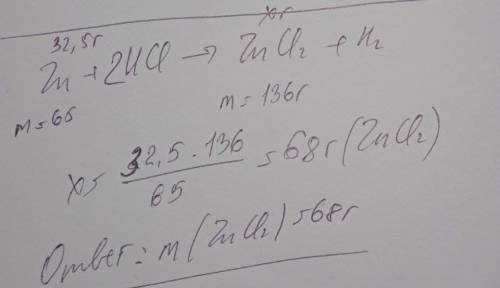 32,5г хг
Zn + 2HCl → ZnCl₂ + H₂
m = 65 m = 136г
x = 32,5 · 136 / 65 = 68г (ZnCl₂)
Ответ: m (ZnCl₂) = 68г